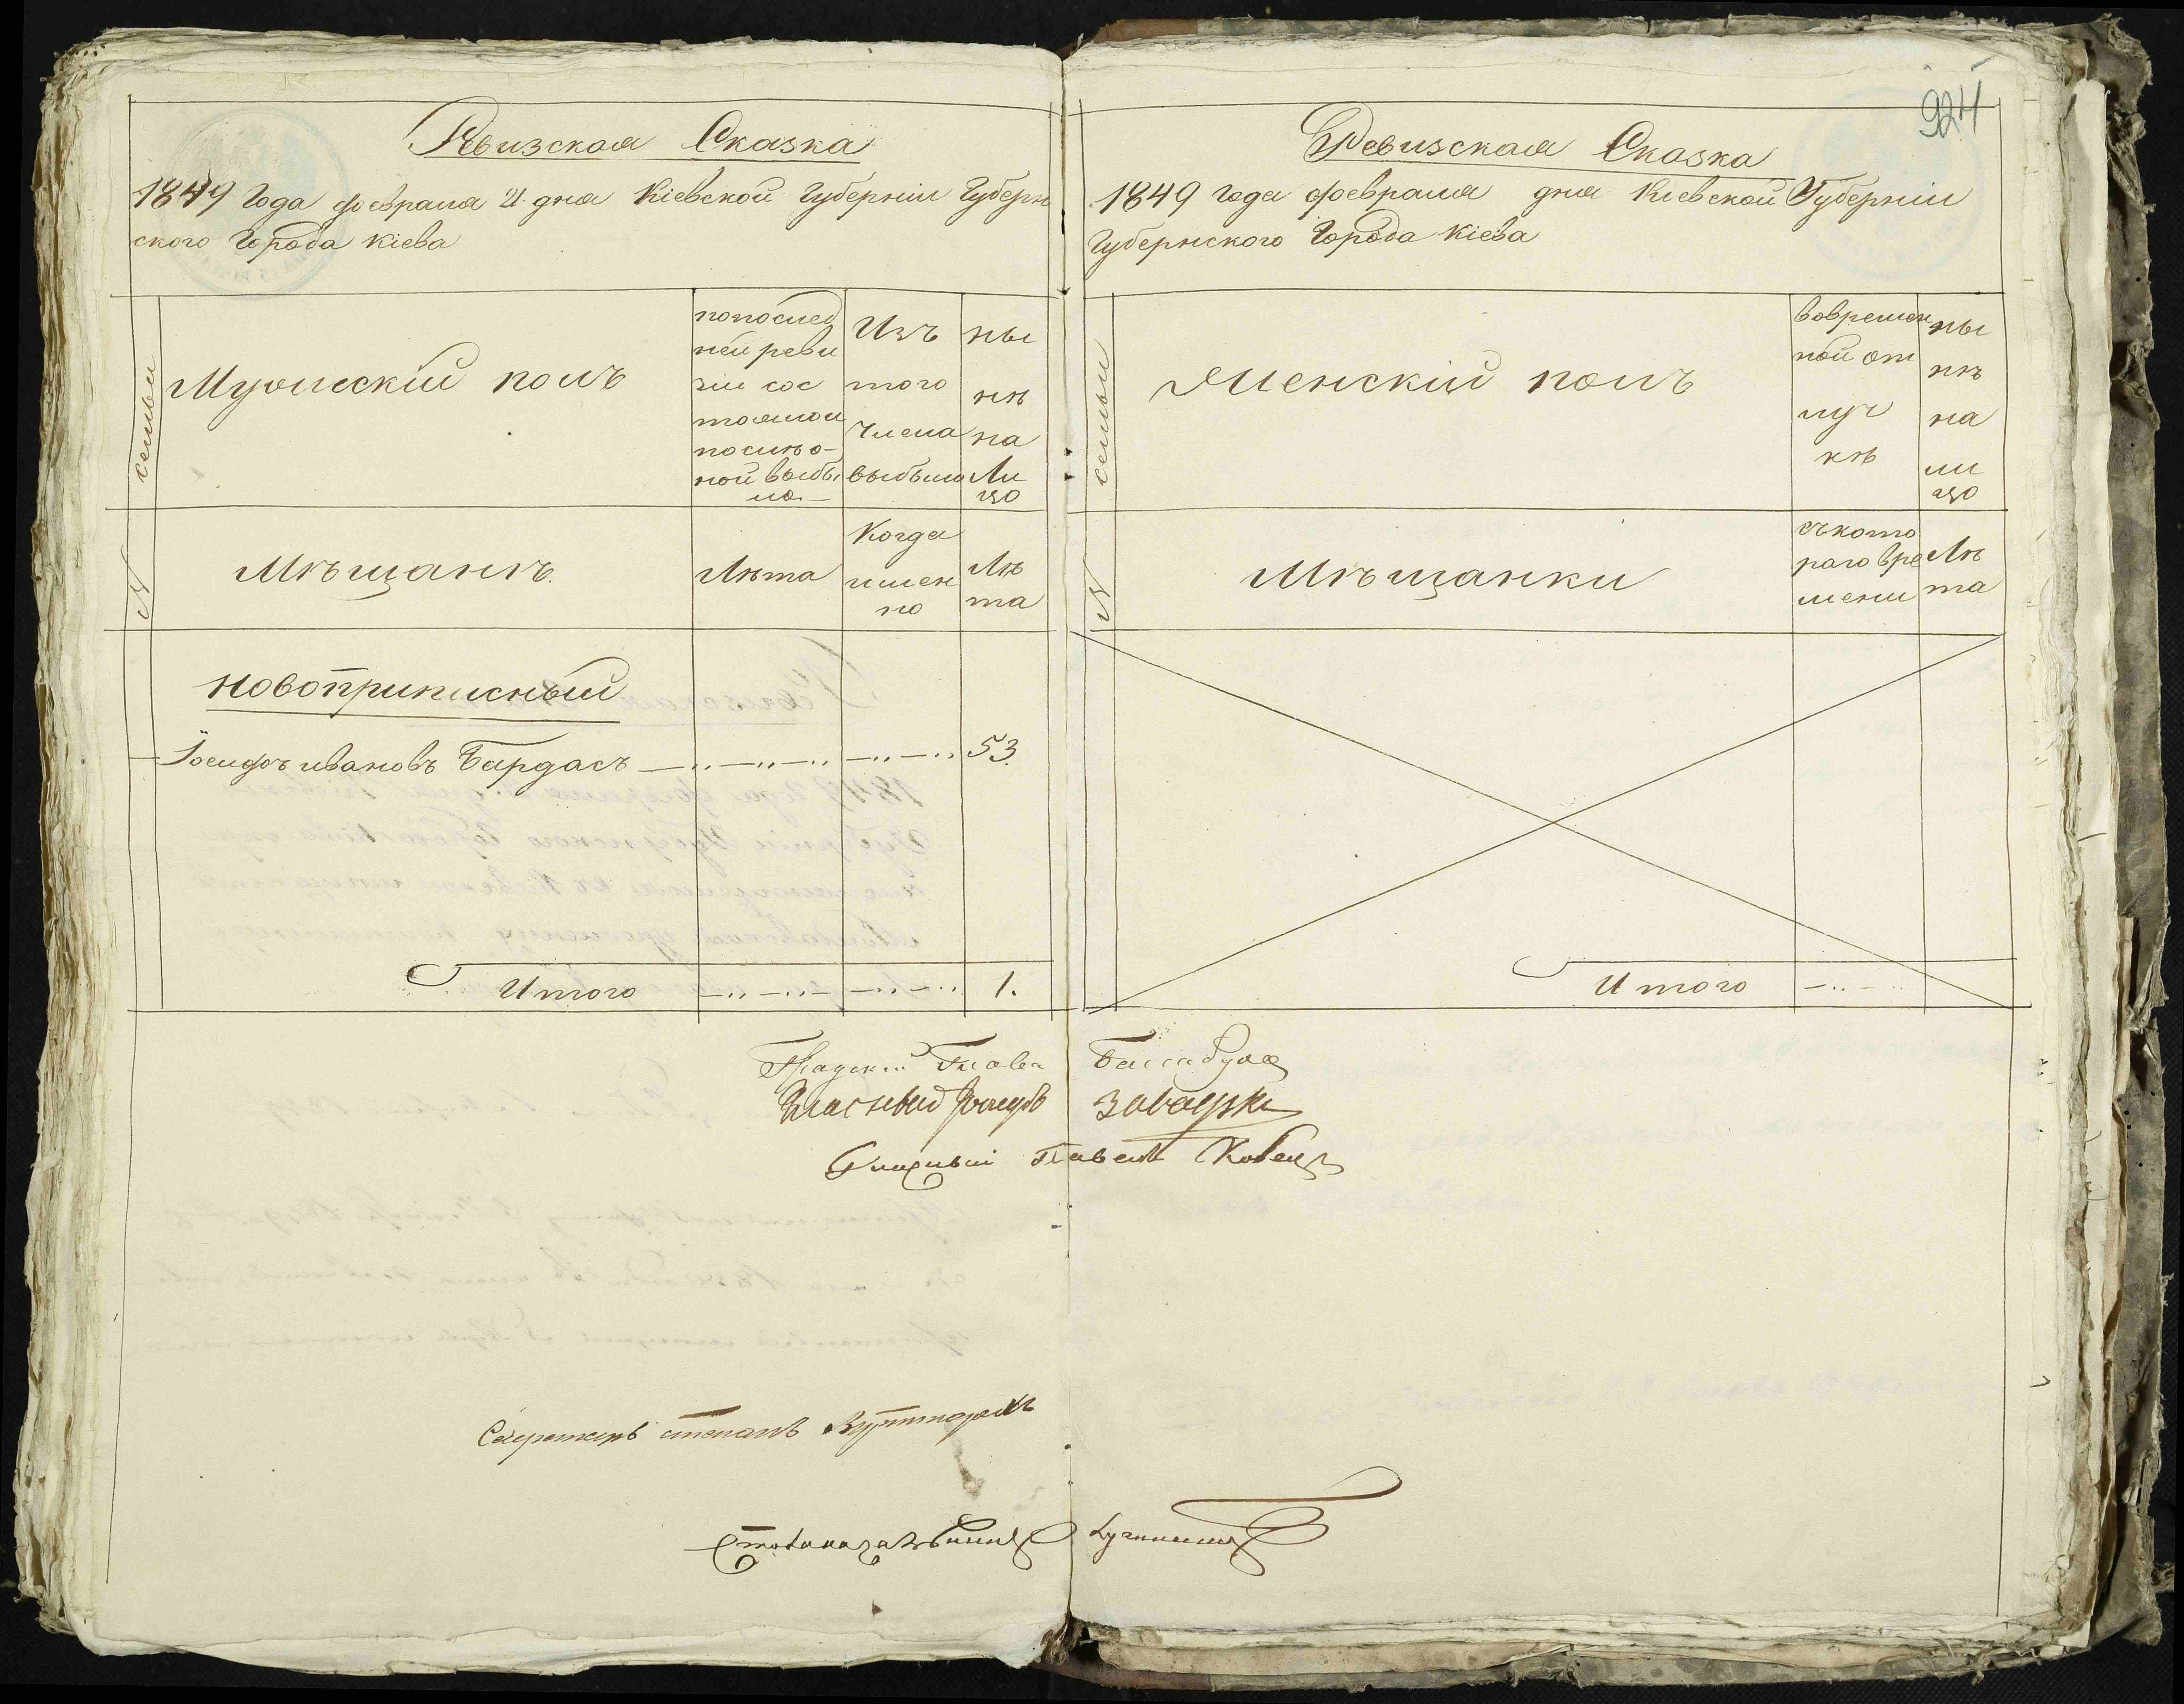 Ревизская Сказка
1849 Года февраля 21 дня Кіевской Губерніи Губерн
ского Города Кіева
семьи
Мужескій полъ
попослед
ней реви
зіи сос
тояло и
после о-
ной выбы
ло
Изъ
того
числа
выбыло
ны
нѣ
на
Ли
цо
№
Мѣщанъ
Лѣта
Когда
имен
но
Лѣ
та
Новоприписный
Іосифъ Ивановъ Бардасъ 53.
Итого 1.
924
Ревизская Сказка
1849 года февраля дня Кіевской Губерніи
Губернского Города Кіева
семьи
Женскій полъ
вовремен
ной от
луч
кѣ
ны
нѣ
на
ли
цо
№
Мѣщанки
съкото
раго вре
мени
Лѣ
та
Итого
Градскій Глава
Гласный Завадзкі
Гласный Павелъ
Секретарь Степанъ
Столоначальникъ